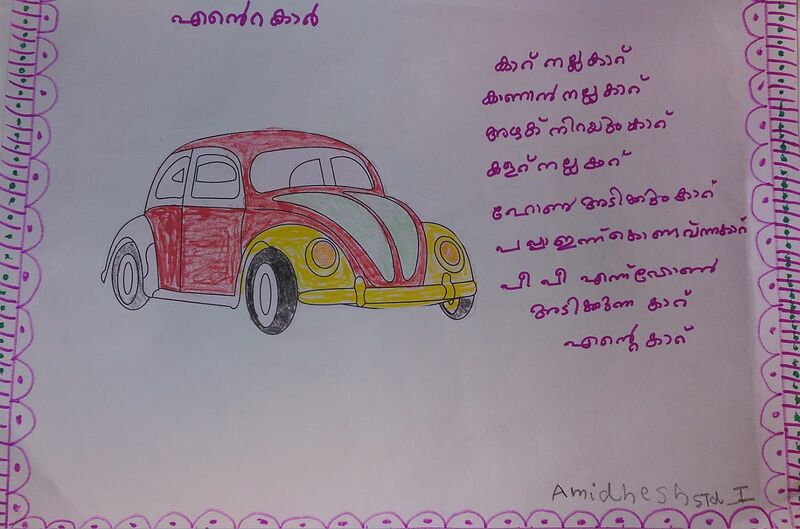 എൻ്റെ കാർ
കാറ് നല്ല കാറ്
കാണാൻ നല്ല കാറ്
അഴക് നിറയും കാറ്
കളറ് നല്ല കാറ്
ഹോണ്ട അടിക്കും കാറ്
പപ്പ ഇന്ന് കൊണ്ടുവന്ന കാറ്
പീ പീ എന്ന് ഹോൺ
അടിക്കുന്ന കാറ്
എൻ്റെ കാറ്
Amidhesh STd_I